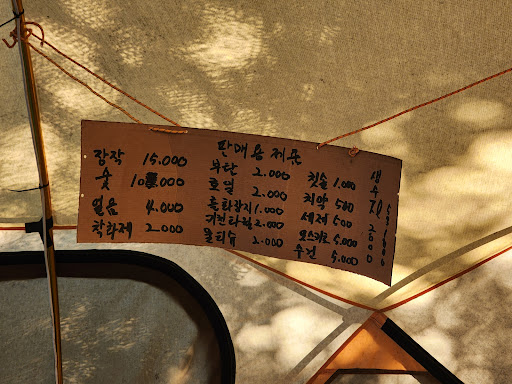 판매용 제품
장작 15.000
숯 10.000
얼음 4.000
착화제 2.000
부탄 2.000
호일 2.000
1.000
키친타월 2.000
물티슈 2.000
칫솔 1.000
치약 500
세제 500
5.000
수건 5.000
생수